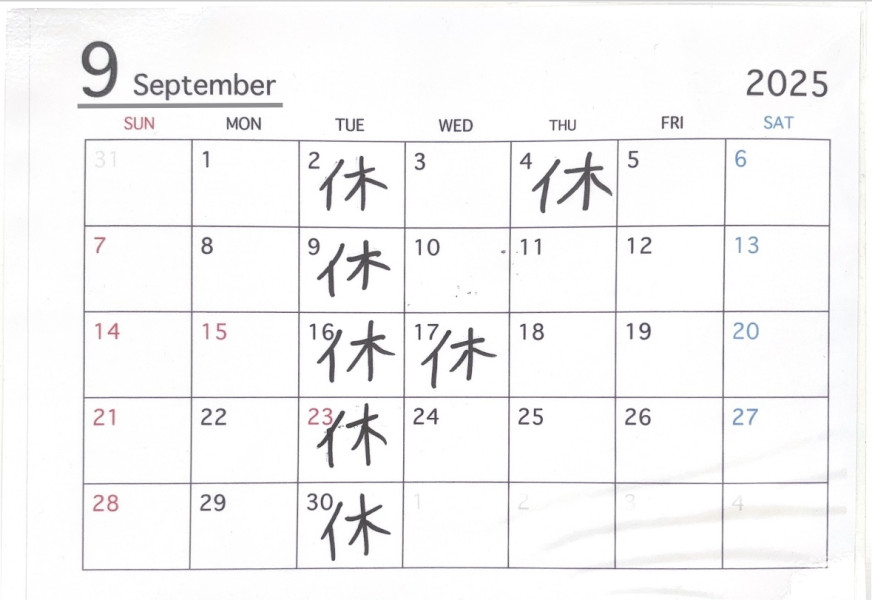 9 September 2025
SUN MON TUE WED THU FRI SAT
31 1 2 休 3 4 休 5 6
7 8 9 休 10 11 12 13
14 15 16 休 17 休 18 19 20
21 22 23 休 24 25 26 27
28 29 30 休 1 2 3 4